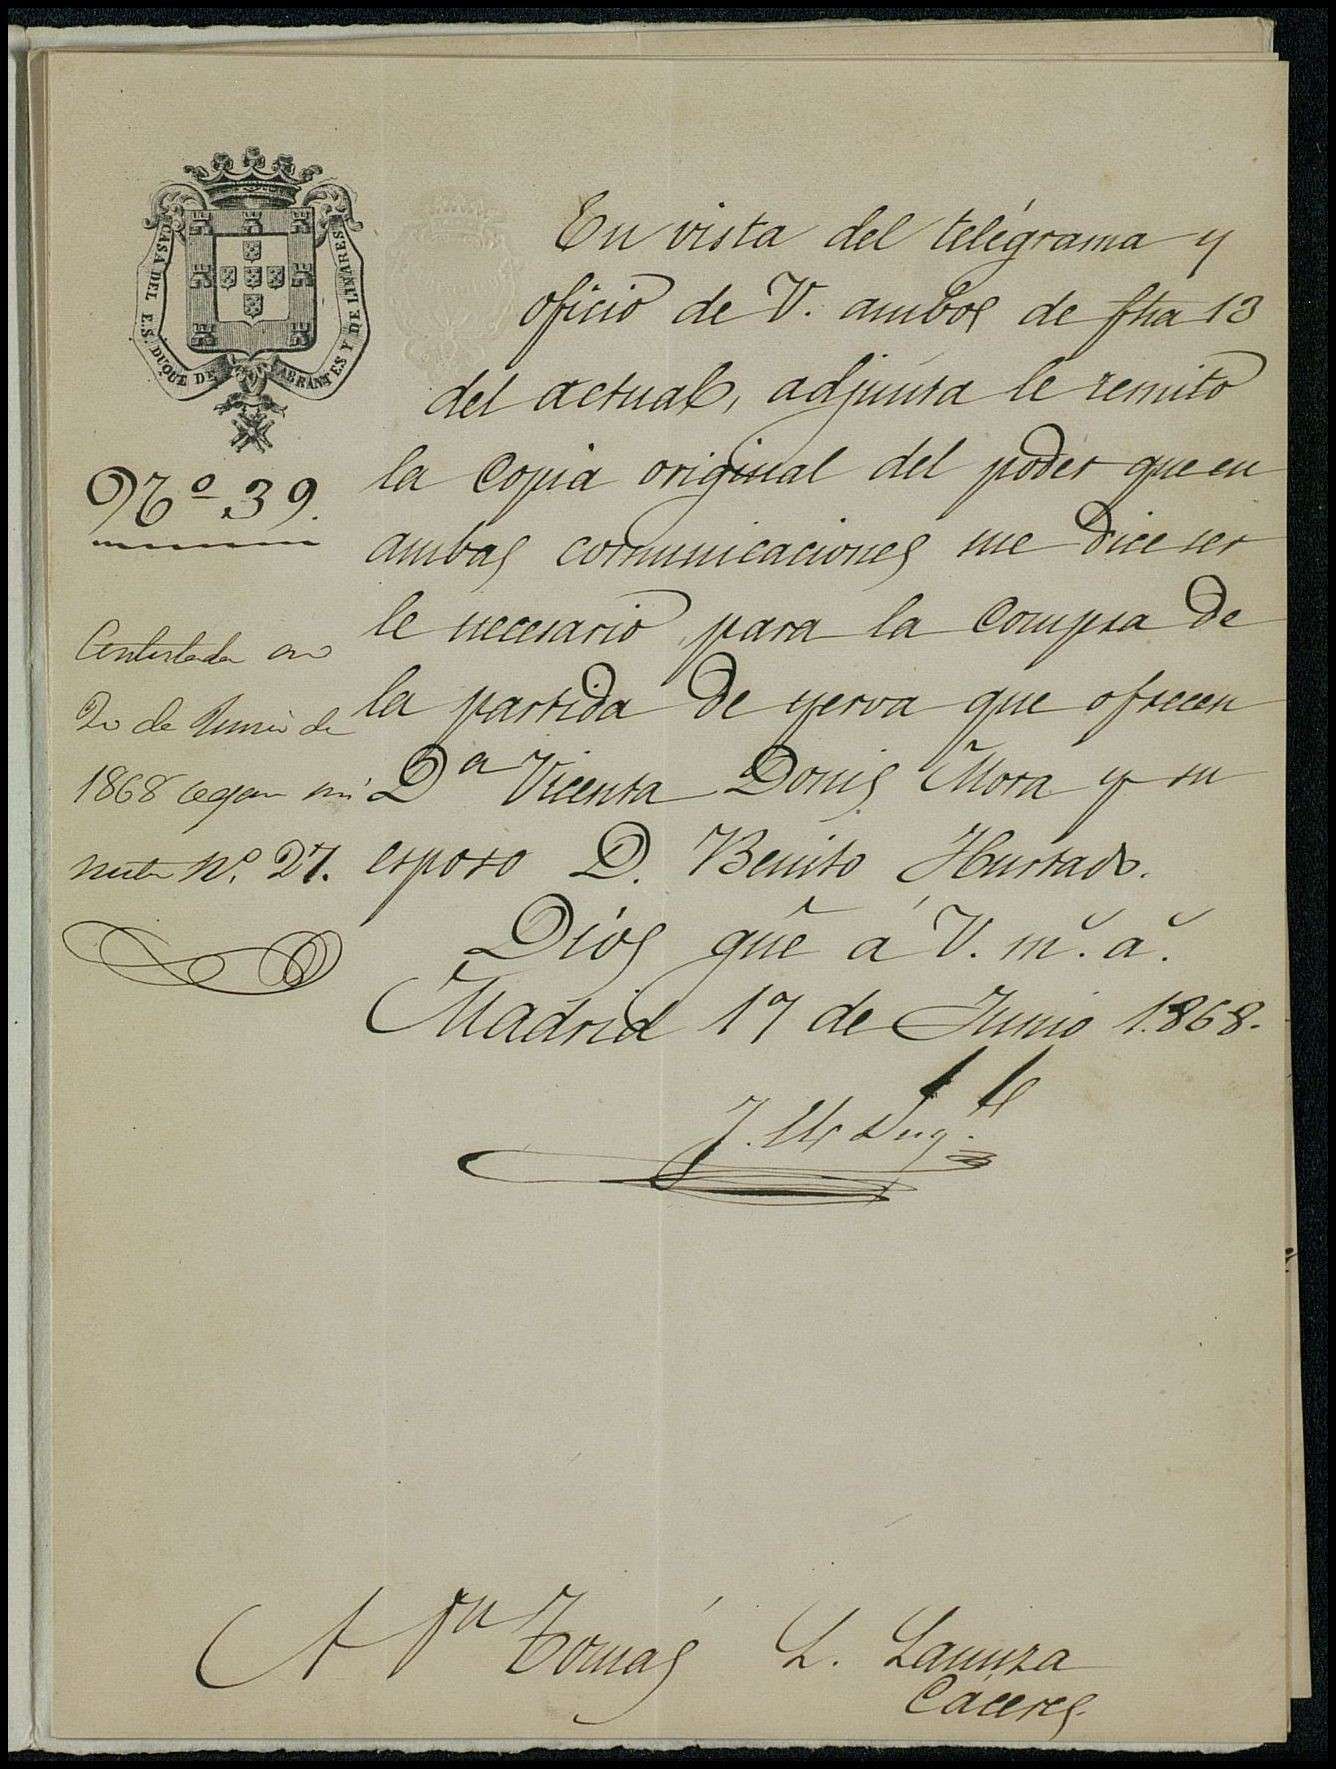 CASA DEL E.S. DUQUE DE ABRANTES Y DE LINARES
Nº 39.
Contestada en
20 de Junio de
1868 segun mi
nuta Nº. 27.
En vista del telégrama y
oficio de V. ambos de fha 13
del actual, adjunta le remito
la copia original del poder que en
ambas comunicaciones me dice ser
le necesario para la compra de
la partida de yerva que ofrecen
Dª Vicenta Donis Mora y su
esposo D. Benito Hurtado.
Dios gue á V. m.s a.s
Madrid 17 de Junio 1.868.
A Dn Tomás L. Lanuza
Cáceres